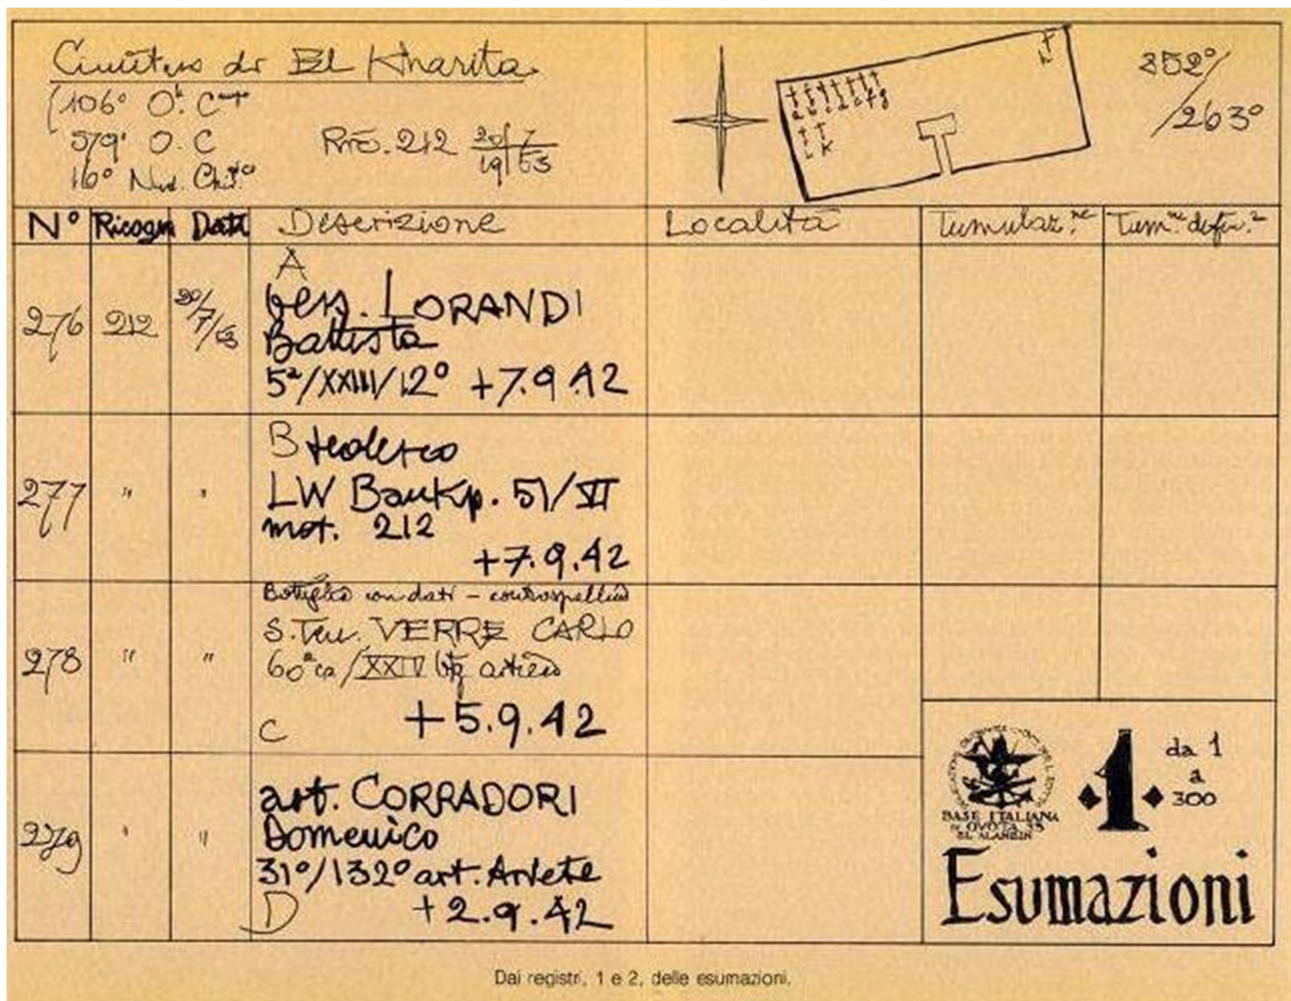 Cimitero di El Kharita
(106° O. C
579° O. C
16° Nu. Chir.co
Ric. 212 20/7 19/53
352°/
/263°
N° Ricogn Data Descrizione Località Tumulaz.ne Tum.ne defin.a
276 212 20/7/53
A
bers. LORANDI
Battista
5ª/XXIII/12° +7.9.42
277 " "
B tedesco
LW Baukp. 51/VI
mot. 212
+7.9.42
278 " "
Bottiglia con dati – contropelliccia
S.Ten. VERRE CARLO
60ª ca/XXIV btg artieri
C +5.9.42
279 " "
art. CORRADORI
Domenico
31°/132° art. Ariete
D +2.9.42
BASE ITALIANA
DI QUOTA 33
EL ALAMEIN
1
da 1
a
300
Esumazioni
Dai registri, 1 e 2, delle esumazioni.